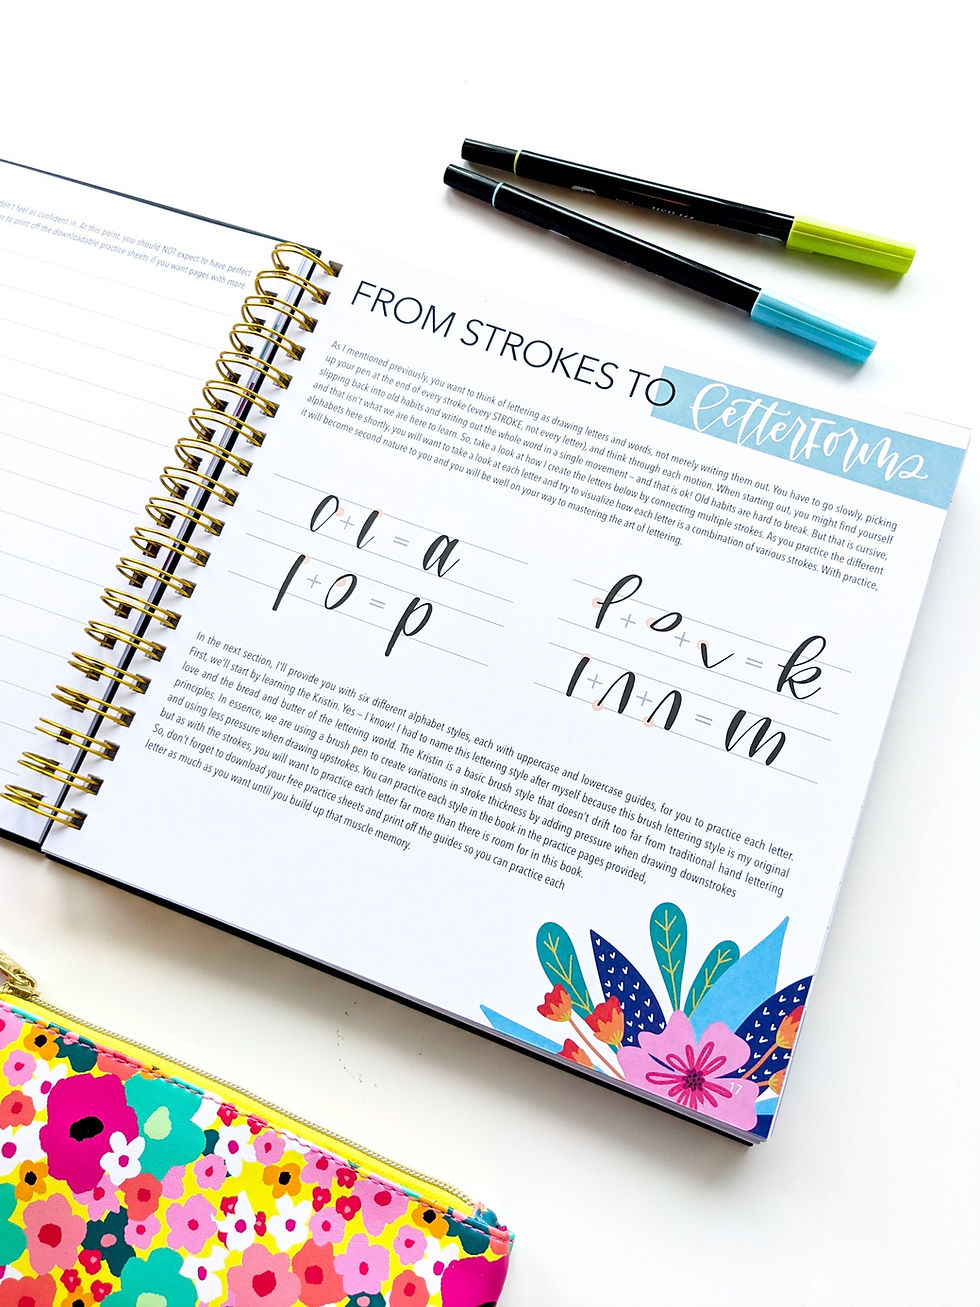 don't feel as confident in. At this point, you should NOT expect to have perfect
to print off the downloadable practice sheets if you want pages with more
FROM STROKES TO letterforms
As I mentioned previously, you want to think of lettering as drawing letters and words, not merely writing them out. You have to go slowly, picking
up your pen at the end of every stroke (every STROKE, not every letter), and think through each motion. When starting out, you might find yourself
slipping back into old habits and writing out the whole word in a single movement – and that is ok! Old habits are hard to break. But that is cursive,
and that isn't what we are here to learn. So, take a look at how I create the letters below by connecting multiple strokes. As you practice the different
alphabets here shortly, you will want to take a look at each letter and try to visualize how each letter is a combination of various strokes. With practice,
it will become second nature to you and you will be well on your way to mastering the art of lettering.
+ = a
+ = p
+ + = k
+ + = m
In the next section, I'll provide you with six different alphabet styles, each with uppercase and lowercase guides, for you to practice each letter.
First, we'll start by learning the Kristin. Yes – I know! I had to name this lettering style after myself because this brush lettering style is my original
love and the bread and butter of the lettering world. The Kristin is a basic brush style that doesn't drift too far from traditional hand lettering
principles. In essence, we are using a brush pen to create variations in stroke thickness by adding pressure when drawing downstrokes
and using less pressure when drawing upstrokes. You can practice each style in the book in the practice pages provided,
but as with the strokes, you will want to practice each letter far more than there is room for in this book.
So, don't forget to download your free practice sheets and print off the guides so you can practice each
letter as much as you want until you build up that muscle memory.
17